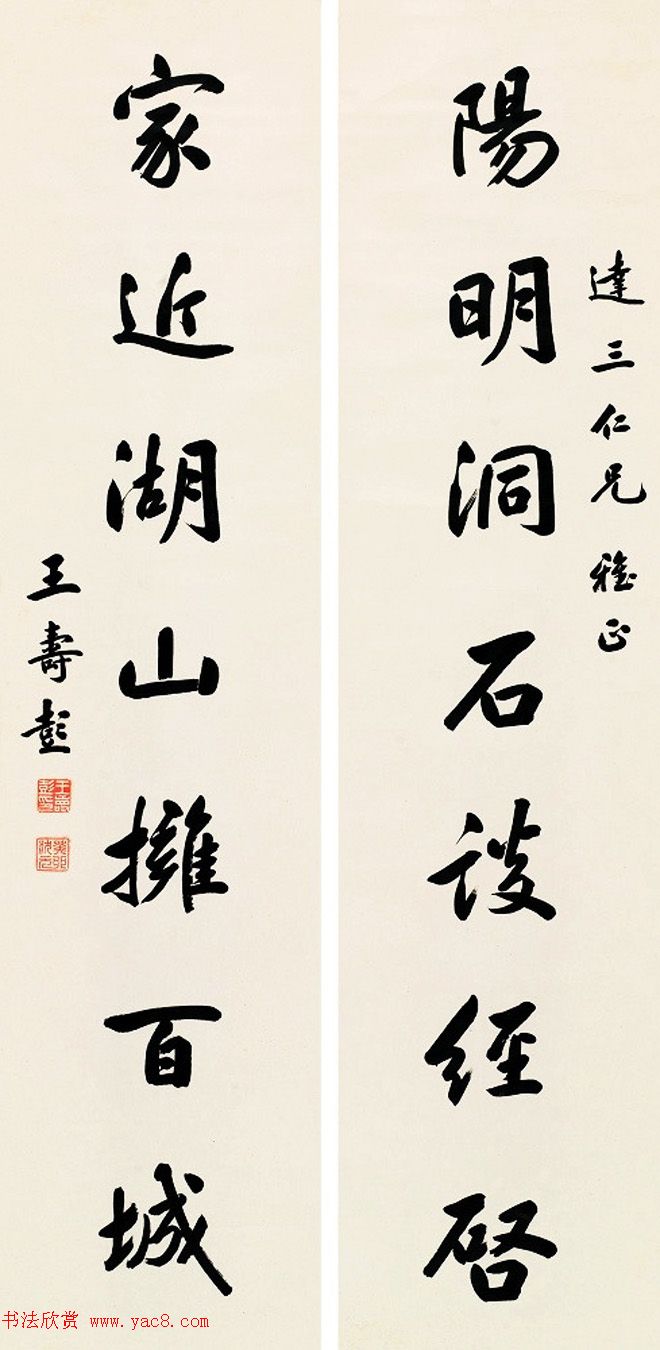 達三仁兄雅正
陽明洞石談經啓
家近湖山擁百城
王壽彭
王壽彭印
癸卯狀元
书法欣赏 www.yac8.com